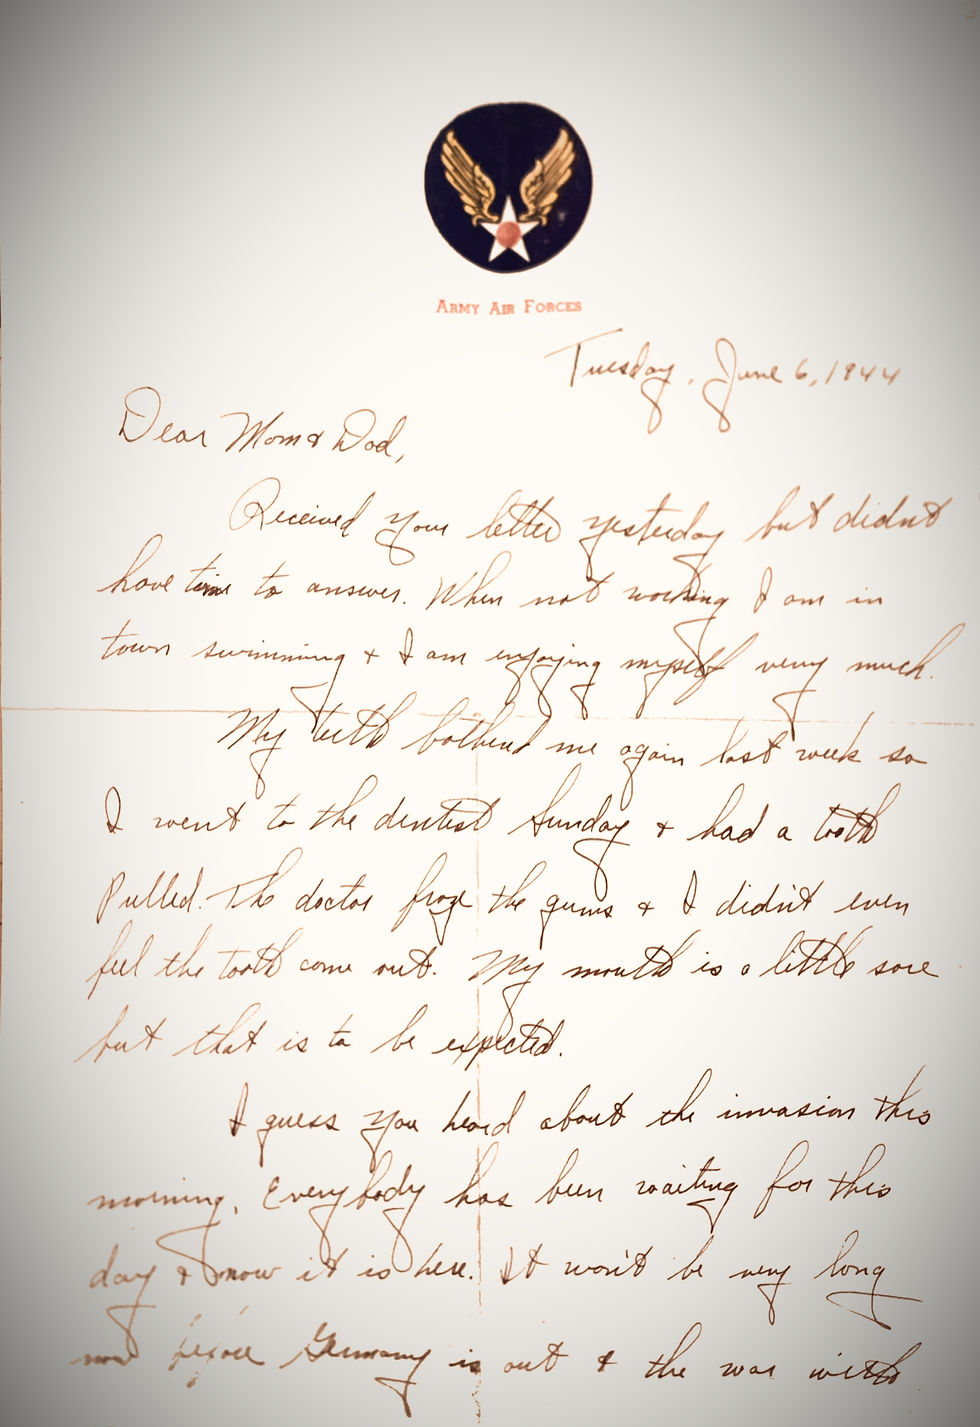 ARMY AIR FORCES
Tuesday, June 6, 1944
Dear Mom & Dad,
Received your letter yesterday but didn't
have time to answer. When not working I am in
town swimming & I am enjoying myself very much.
My teeth bothered me again last week so
I went to the dentist Sunday & had a tooth
Pulled. The doctor froze the gums & I didn't even
feel the tooth come out. My mouth is a little sore
but that is to be expected.
I guess you heard about the invasion this
morning. Everybody has been waiting for this
day & now it is here. It won't be very long
now before Germany is out & the war with